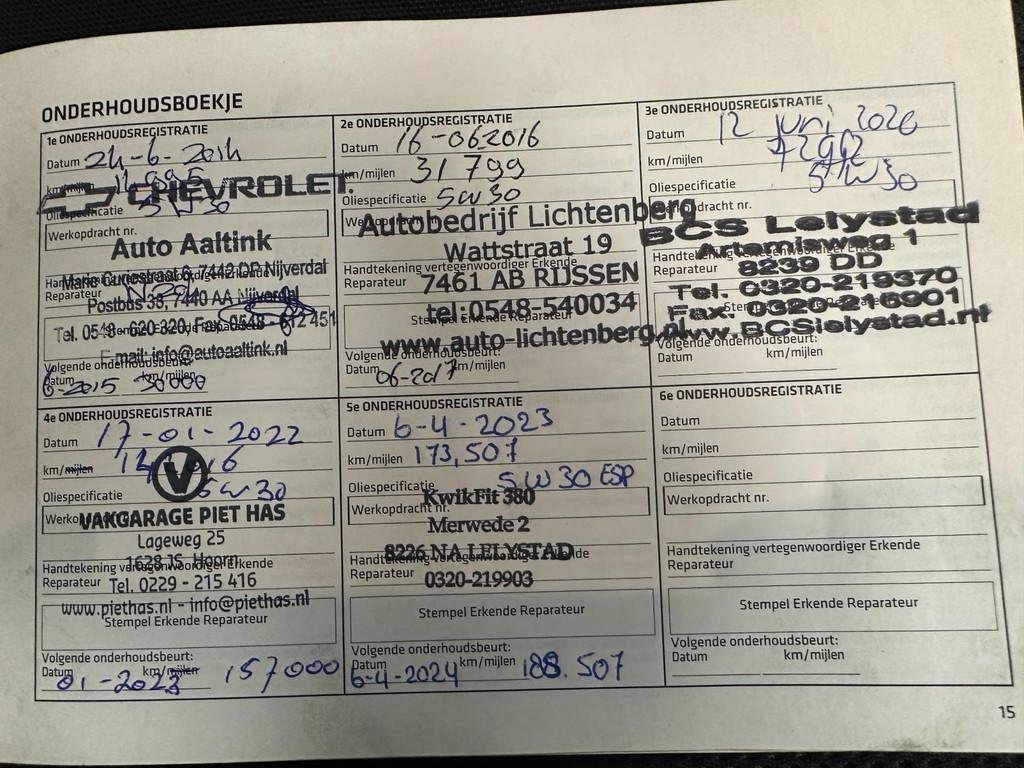 ONDERHOUDSBOEKJE
1e ONDERHOUDSREGISTRATIE
Datum 24-6-2014
km/mijlen
CHEVROLET
Oliespecificatie 5W30
Werkopdracht nr.
Auto Aaltink
Marie Curiestraat 6, 7442 DP Nijverdal
Reparateur
Postbus 38, 7440 AA Nijverdal
Tel. 0548 - 620 320, Fax. 0548 - 612 451
Stempel Erkende Reparateur
E-mail: info@autoaaltink.nl
Volgende onderhoudsbeurt:
Datum km/mijlen
6-2015 30000
2e ONDERHOUDSREGISTRATIE
Datum 16-06-2016
km/mijlen 31799
Oliespecificatie 5W30
Autobedrijf Lichtenberg
Wattstraat 19
Handtekening vertegenwoordiger Erkende
Reparateur
7461 AB RIJSSEN
tel:0548-540034
Stempel Erkende Reparateur
www.auto-lichtenberg.nl
Volgende onderhoudsbeurt:
Datum 06-2017 km/mijlen
3e ONDERHOUDSREGISTRATIE
Datum 12 juni 2020
km/mijlen
Oliespecificatie 5W30
Werkopdracht nr.
BCS Lelystad
Artemisweg 1
Handtekening
Reparateur
8239 DD
Tel. 0320-219370
Fax: 0320-216901
www.BCSlelystad.nl
Volgende onderhoudsbeurt:
Datum km/mijlen
4e ONDERHOUDSREGISTRATIE
Datum 17-01-2022
km/mijlen
V
Oliespecificatie 5W30
VAKGARAGE PIET HAS
Lageweg 25
1628 JS Hoorn
Handtekening vertegenwoordiger Erkende
Reparateur
Tel. 0229 - 215 416
www.piethas.nl - info@piethas.nl
Stempel Erkende Reparateur
Volgende onderhoudsbeurt:
Datum km/mijlen
01-2023 157000
5e ONDERHOUDSREGISTRATIE
Datum 6-4-2023
km/mijlen 173,507
Oliespecificatie 5W30 ESP
KwikFit 380
Werkopdracht nr.
Merwede 2
8226 NA LELYSTAD
Reparateur
0320-219903
Stempel Erkende Reparateur
Volgende onderhoudsbeurt:
Datum km/mijlen
6-4-2024 188.507
6e ONDERHOUDSREGISTRATIE
Datum
km/mijlen
Oliespecificatie
Werkopdracht nr.
Handtekening vertegenwoordiger Erkende
Reparateur
Stempel Erkende Reparateur
Volgende onderhoudsbeurt:
Datum km/mijlen
15